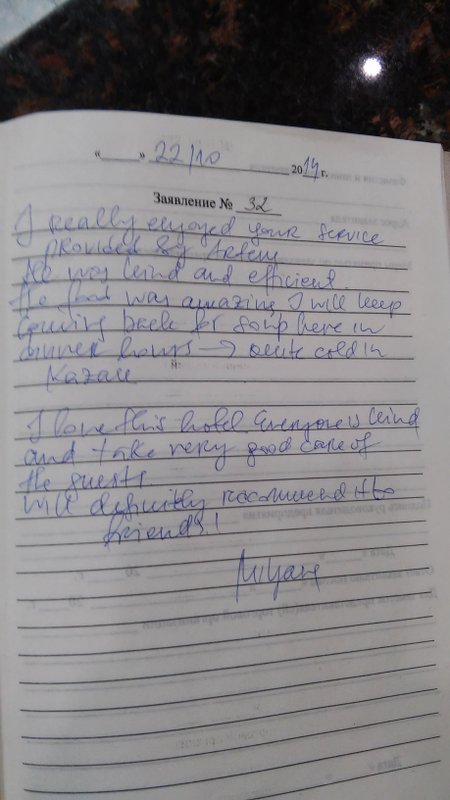 «____» 22/10 2014 г.
Заявление № 32
I really enjoyed your service
provided by Artem
He was kind and efficient.
The food was amazing, I will keep
coming back for soup here in
dinner hours → quite cold in
Kazan
I love this hotel. Everyone is kind
and take very good care of
the guests
will definitly recommend it to
friends!